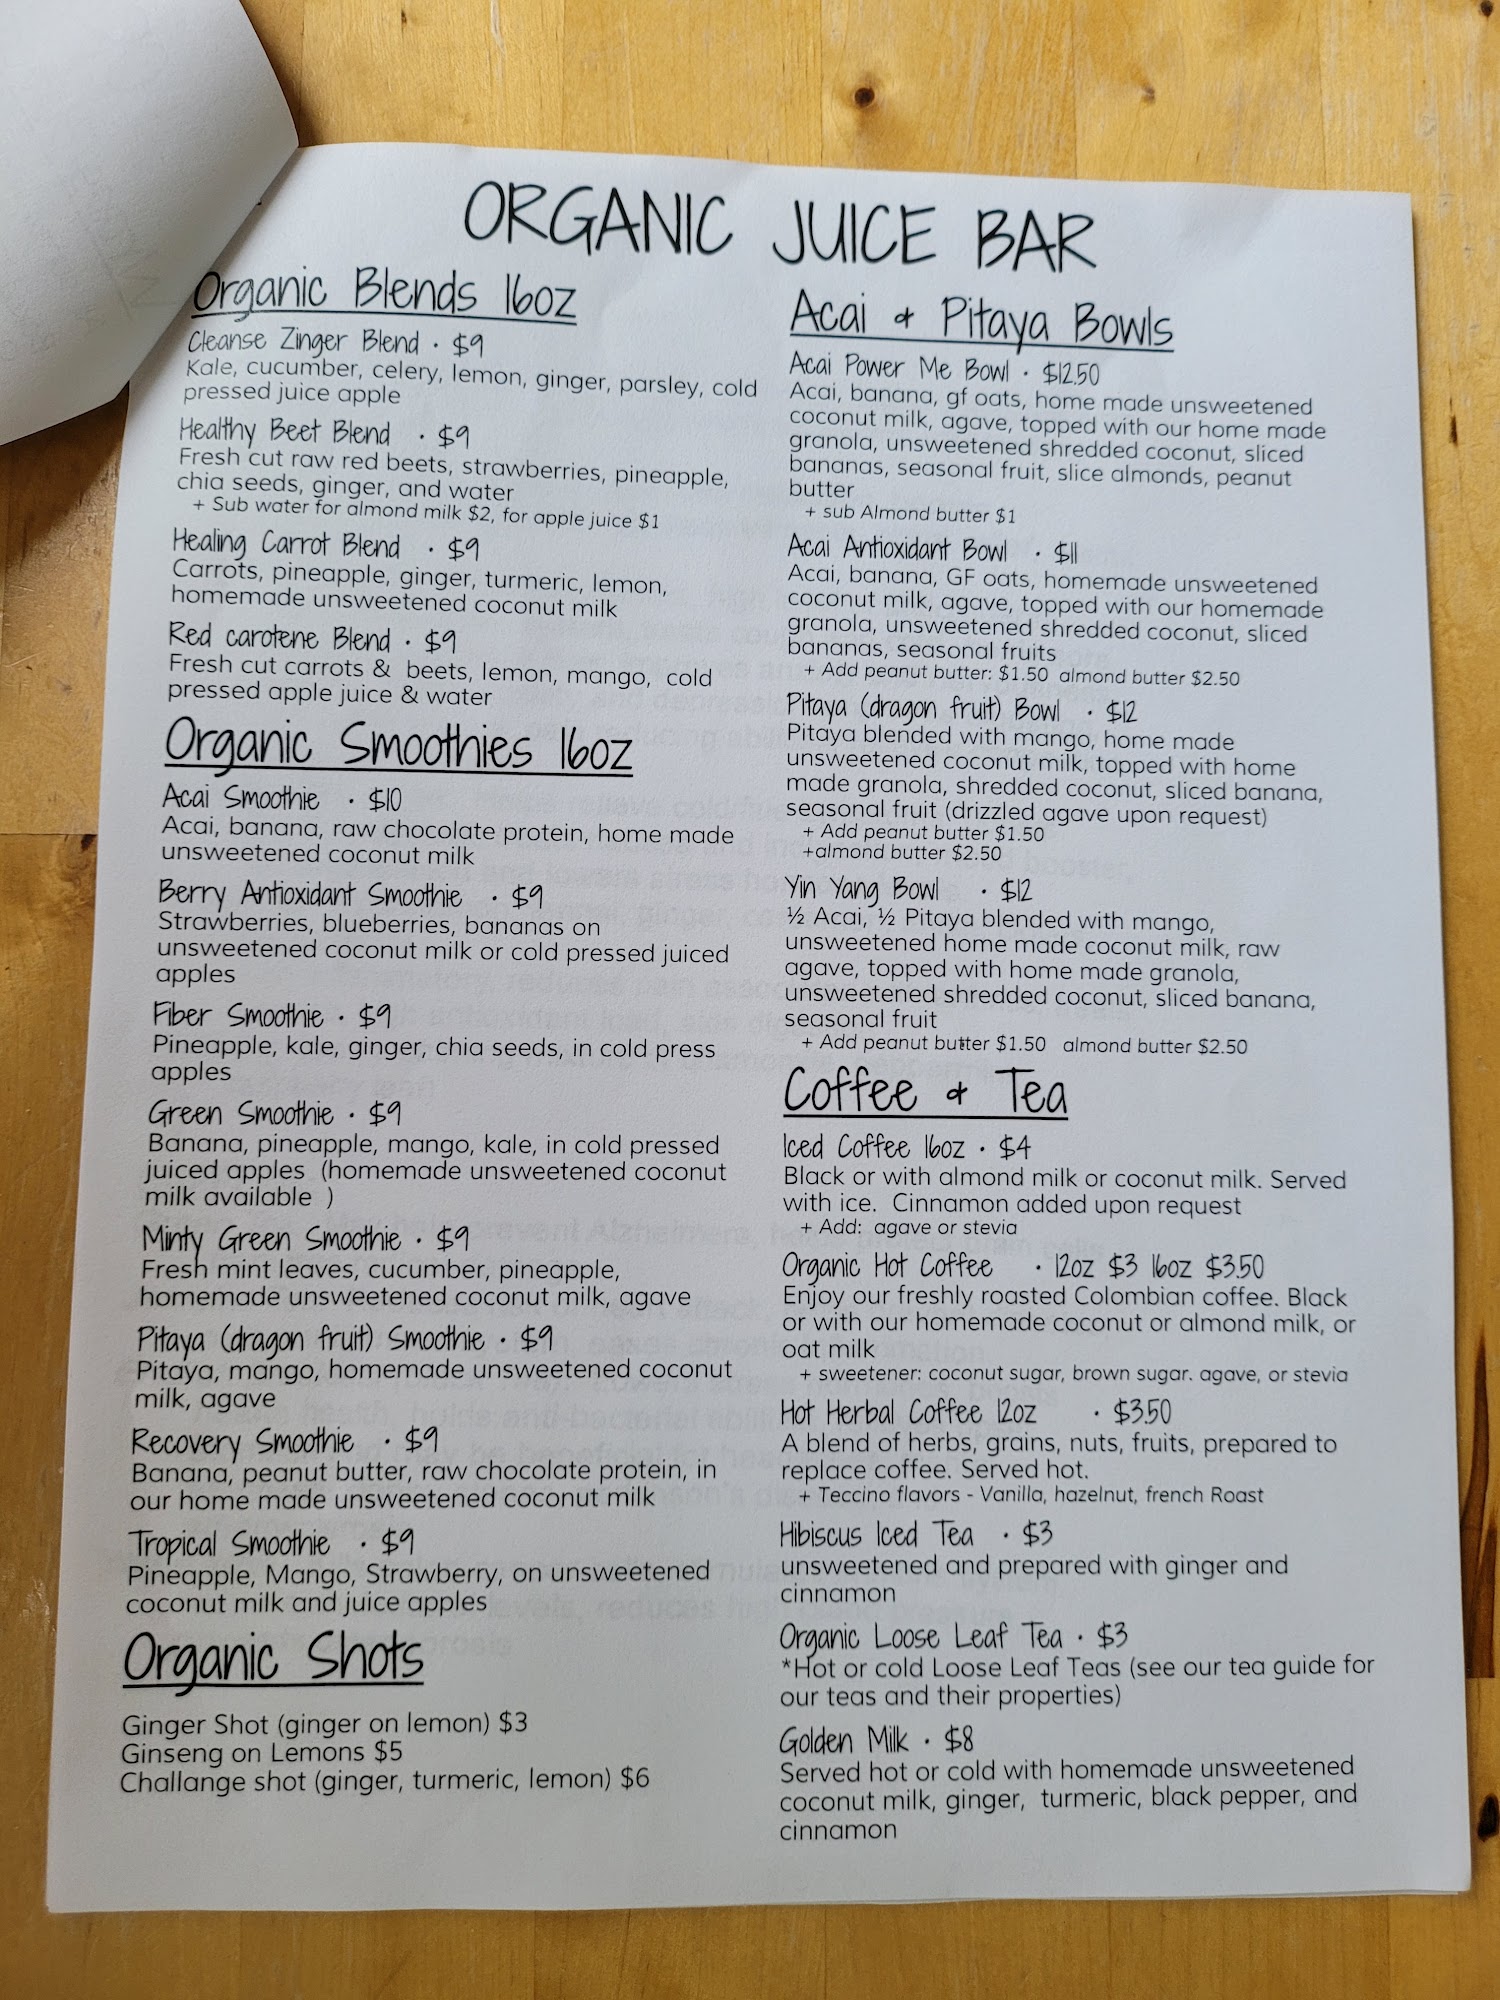 ORGANIC JUICE BAR
Organic Blends 16oz
Cleanse Zinger Blend • $9
Kale, cucumber, celery, lemon, ginger, parsley, cold
pressed juice apple
Healthy Beet Blend • $9
Fresh cut raw red beets, strawberries, pineapple,
chia seeds, ginger, and water
+ Sub water for almond milk $2, for apple juice $1
Healing Carrot Blend • $9
Carrots, pineapple, ginger, turmeric, lemon,
homemade unsweetened coconut milk
Red carotene Blend • $9
Fresh cut carrots & beets, lemon, mango, cold
pressed apple juice & water
Organic Smoothies 16oz
Acai Smoothie • $10
Acai, banana, raw chocolate protein, home made
unsweetened coconut milk
Berry Antioxidant Smoothie • $9
Strawberries, blueberries, bananas on
unsweetened coconut milk or cold pressed juiced
apples
Fiber Smoothie • $9
Pineapple, kale, ginger, chia seeds, in cold press
apples
Green Smoothie • $9
Banana, pineapple, mango, kale, in cold pressed
juiced apples (homemade unsweetened coconut
milk available )
Minty Green Smoothie • $9
Fresh mint leaves, cucumber, pineapple,
homemade unsweetened coconut milk, agave
Pitaya (dragon fruit) Smoothie • $9
Pitaya, mango, homemade unsweetened coconut
milk, agave
Recovery Smoothie • $9
Banana, peanut butter, raw chocolate protein, in
our home made unsweetened coconut milk
Tropical Smoothie • $9
Pineapple, Mango, Strawberry, on unsweetened
coconut milk and juice apples
Organic Shots
Ginger Shot (ginger on lemon) $3
Ginseng on Lemons $5
Challange shot (ginger, turmeric, lemon) $6
Acai & Pitaya Bowls
Acai Power Me Bowl • $12.50
Acai, banana, gf oats, home made unsweetened
coconut milk, agave, topped with our home made
granola, unsweetened shredded coconut, sliced
bananas, seasonal fruit, slice almonds, peanut
butter
+ sub Almond butter $1
Acai Antioxidant Bowl • $11
Acai, banana, GF oats, homemade unsweetened
coconut milk, agave, topped with our homemade
granola, unsweetened shredded coconut, sliced
bananas, seasonal fruits
+ Add peanut butter: $1.50 almond butter $2.50
Pitaya (dragon fruit) Bowl • $12
Pitaya blended with mango, home made
unsweetened coconut milk, topped with home
made granola, shredded coconut, sliced banana,
seasonal fruit (drizzled agave upon request)
+ Add peanut butter $1.50
+almond butter $2.50
Yin Yang Bowl • $12
½ Acai, ½ Pitaya blended with mango,
unsweetened home made coconut milk, raw
agave, topped with home made granola,
unsweetened shredded coconut, sliced banana,
seasonal fruit
+ Add peanut butter $1.50 almond butter $2.50
Coffee & Tea
Iced Coffee 16oz • $4
Black or with almond milk or coconut milk. Served
with ice. Cinnamon added upon request
+ Add: agave or stevia
Organic Hot Coffee • 12oz $3 16oz $3.50
Enjoy our freshly roasted Colombian coffee. Black
or with our homemade coconut or almond milk, or
oat milk
+ sweetener: coconut sugar, brown sugar. agave, or stevia
Hot Herbal Coffee 12oz • $3.50
A blend of herbs, grains, nuts, fruits, prepared to
replace coffee. Served hot.
+ Teccino flavors - Vanilla, hazelnut, french Roast
Hibiscus Iced Tea • $3
unsweetened and prepared with ginger and
cinnamon
Organic Loose Leaf Tea • $3
*Hot or cold Loose Leaf Teas (see our tea guide for
our teas and their properties)
Golden Milk • $8
Served hot or cold with homemade unsweetened
coconut milk, ginger, turmeric, black pepper, and
cinnamon